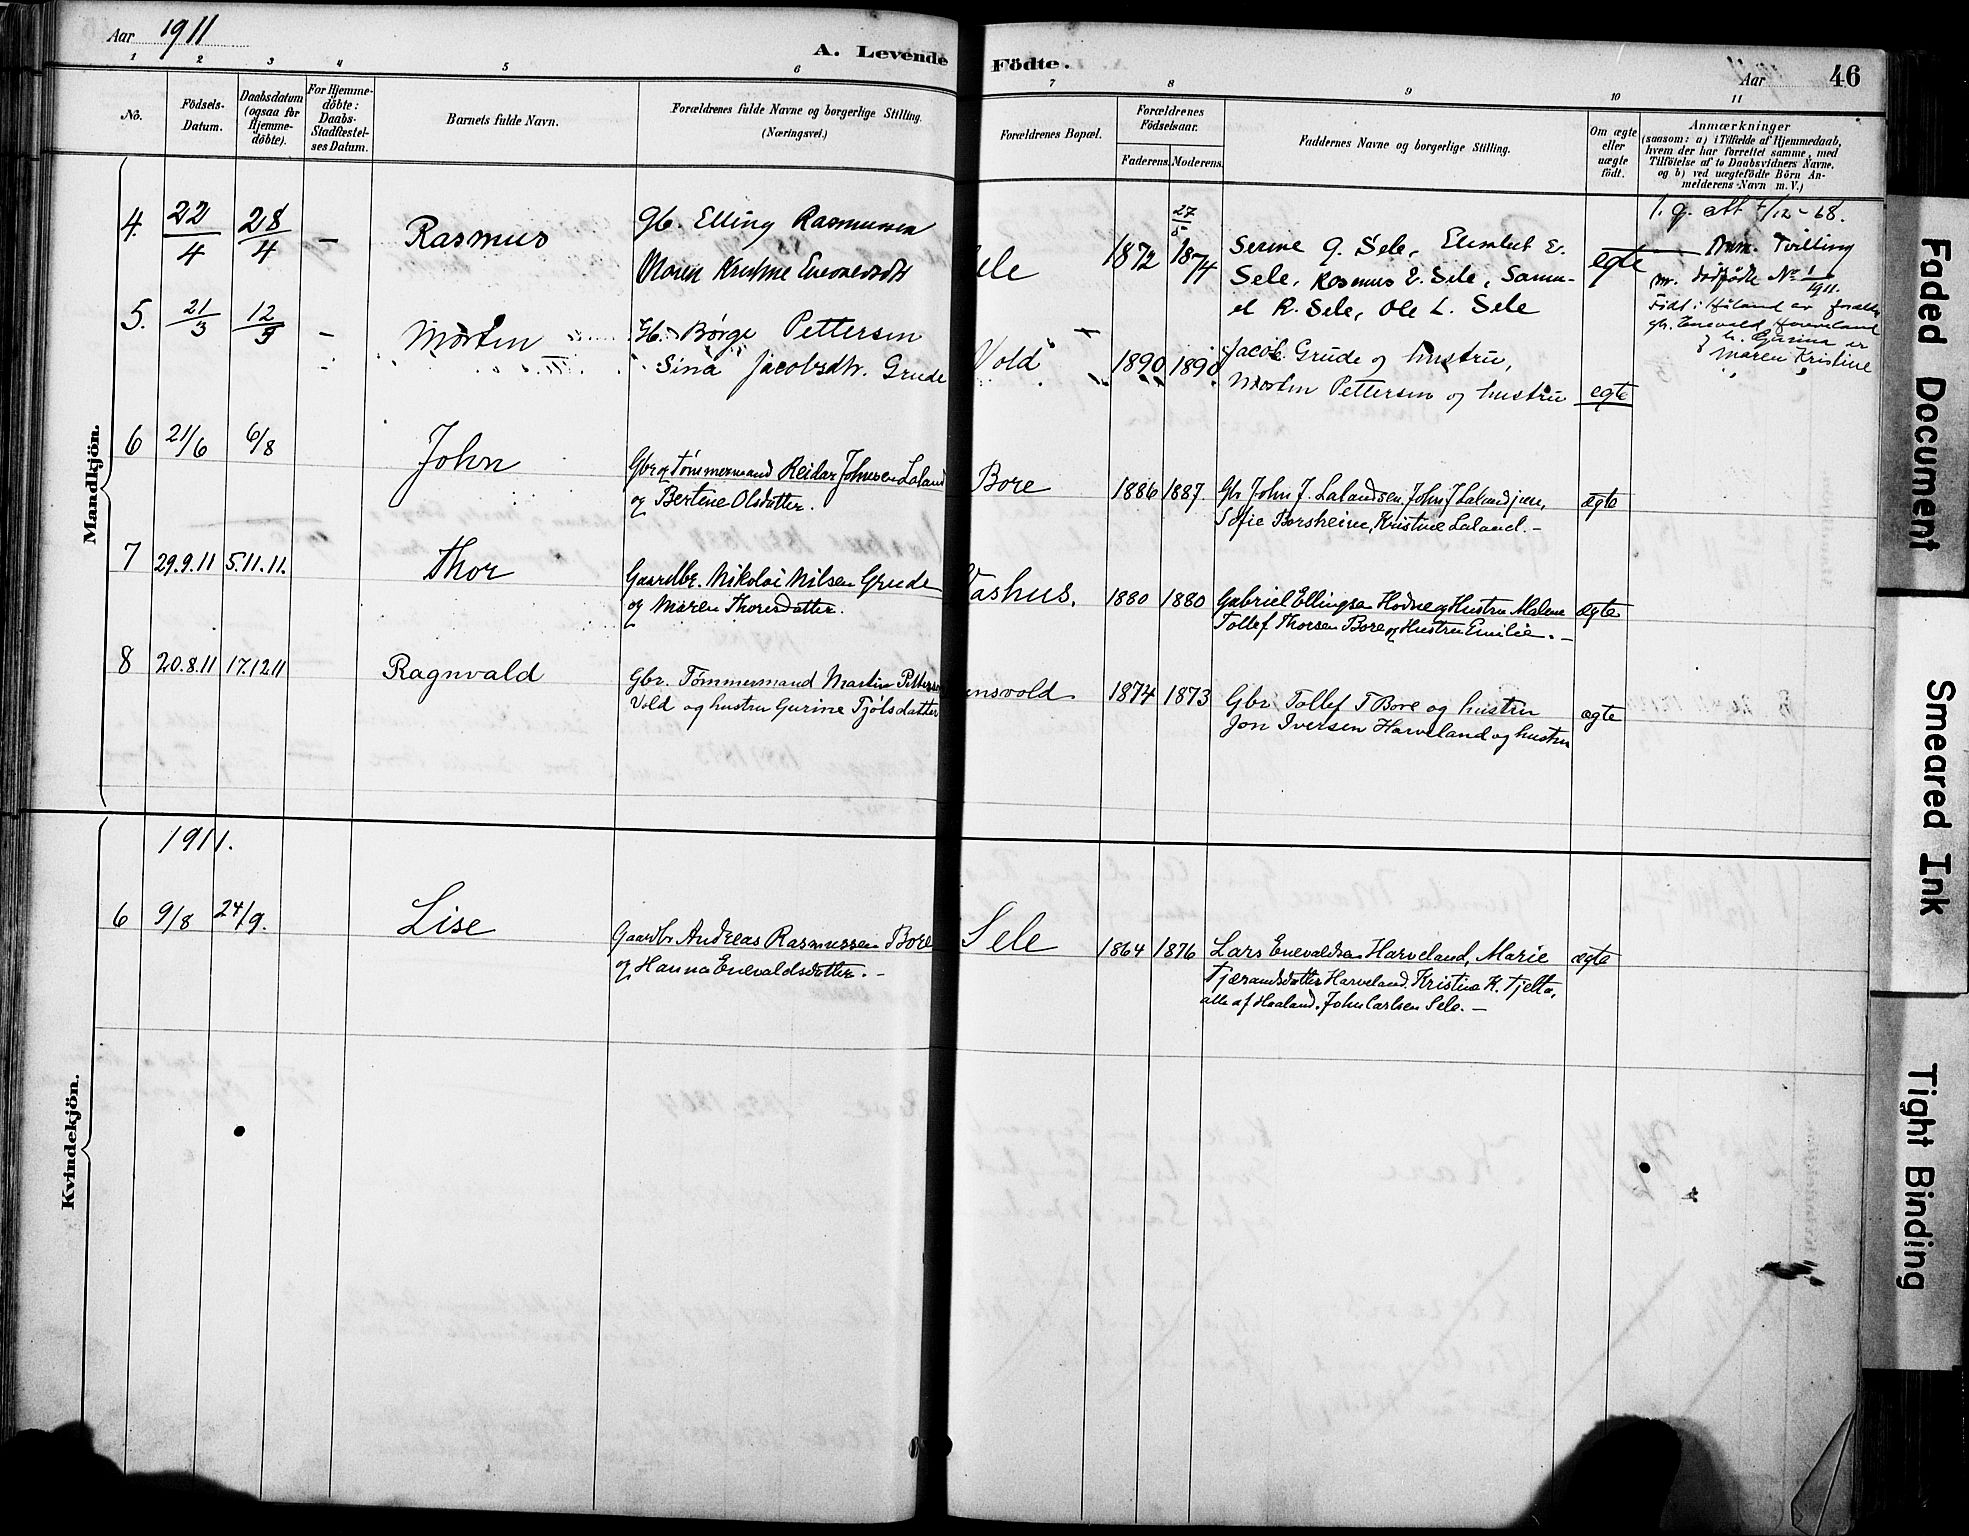 Aar 1911
A. Levende Födte.
Aar 46
1 2 3 4 5 6 7 8 9 10 11
No.
Födsels-
Datum.
Daabsdatum
(ogsaa for
Hjemme-
döbte).
For Hjemme-
döbte:
Daabs-
Stadfæstel-
ses Datum.
Barnets fulde Navn.
Forældrenes fulde Navne og borgerlige Stilling.
(Næringsvei.)
Forældrenes Bopæl.
Forældrenes
Födselsaar.
Faderens. Moderens.
Faddernes Navne og borgerlige Stilling.
Om ægte
eller
uægte
födt.
Anmærkninger
(saasom: a) i Tilfælde af Hjemmedaab,
hvem der har forrettet samme, med
Tilföielse af to Daabsvidners Navne,
og b) ved uægtefödte Börn An-
melderens Navn m. V.)
Mandkjön.
4. 22/4 28/4 — Rasmus
Gb. Elling Rasmussen
Maren Kristine Enevaldsdt
Sele 1872 27/5 1874
Serine G. Sele, Elisabet E.
Sele, Rasmus E. Sele, Samu-
el R. Sele, Ole L. Sele
egte
1. g. att 7/12-68.
Anm. Tvilling
m. dødfødte No 1/1911.
Født i Håland er foreldr
gb. Enevald Harveland
og h. Gurina er
Maren Kristine
5. 21/3 12/5 — Morten
Gb. Børge Pettersen
Sina Jacobsdtr. Grude
Vold 1890 1890
Jacob Grude og hustru,
Morten Pettersen og hustru
egte
6 21/6 6/8 John
Gbr og Tømmermand Reidar Johnsen Laland
og Bertine Olsdatter.
Bore 1886 1887
Gb John J. Lalandsen, John J Laland jun,
Sofie Borsheim, Kristine Laland. —
ægte
7 29.9.11 5.11.11. Thor
Gaardbr. Nikolai Nilsen Grude
og Maren Thoresdatter.
Vashus. 1880 1880
Gabriel Ellingsen Hodne og Hustru Malene
Tollef Thorsen Bore og Hustru Emilie. —
ægte
8 20.8.11 17.12.11 Ragnvald
Gbr. Tømmermand Martin Pettersen
Vold og hustru Gurine Tjølsdatter
nsvold 1874 1873
Gbr Tollef T Bore og hustru
Jon Iversen Harveland og hustru
ægte
Kvindekjön.
1911.
6 9/8 24/9. Lise
Gaardbr Andreas Rasmussen Bore
og Hanna Enevaldsdatter. —
Sele 1864 1876
Lars Enevaldsen Harveland, Marie
Tjeransdatter Harveland. Kristine K. Tjelta,
alle af Haaland. John Carlsen Sele. —
ægte
Faded Document
Smeared Ink
Tight Binding